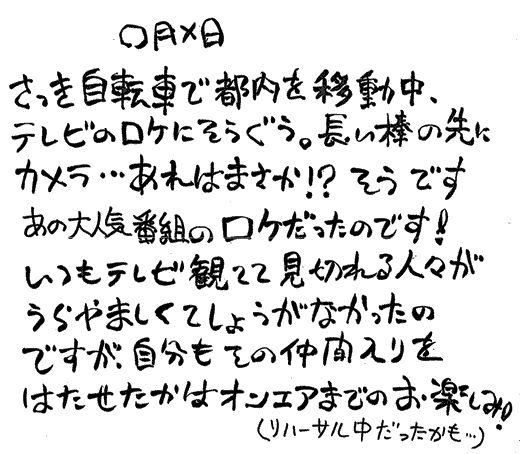 〇月×日
さっき自転車で都内を移動中、
テレビのロケにそうぐう。長い棒の先に
カメラ…あれはまさか!?そうです
あの大人気番組のロケだったのです!
いつもテレビ観てて見切れる人々が
うらやましくてしょうがなかったの
ですが、自分もその仲間入りを
はたせたかはオンエアまでのお楽しみ!
(リハーサル中だったかも…)